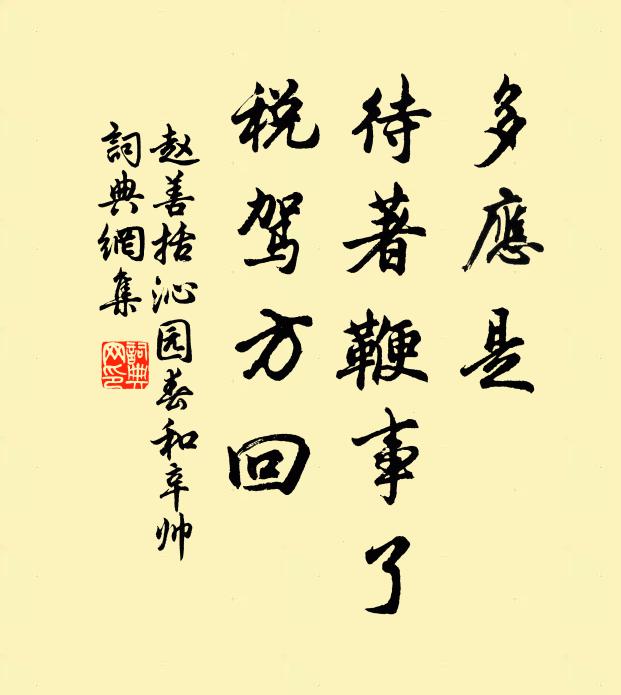 多應是
待著鞭事了
税驾方回
赵善括沁园春和辛帅
詞典網集
詞典網印